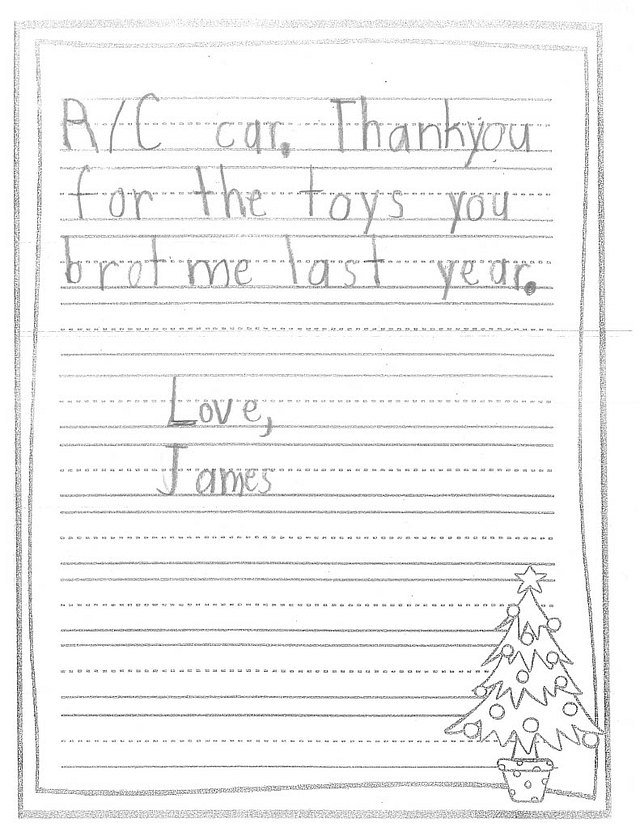 R/C car. Thankyou
for the toys you
brot me last year.
Love,
James